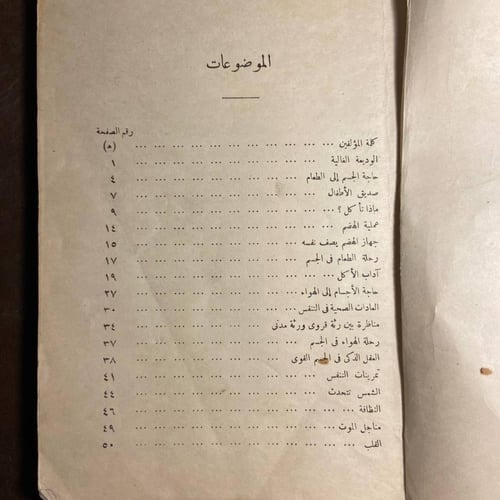 الموضوعات
رقم الصفحة
كلمة المؤلفين ... ... ... ... ... ... ... ... ... (ھ)
الوديعة الغالية ... ... ... ... ... ... ... ... ... ١
حاجة الجسم إلى الطعام ... ... ... ... ... ... ... ... ٤
صديق الأطفال ... ... ... ... ... ... ... ... ... ٧
ماذا نأكل ؟ ... ... ... ... ... ... ... ... ... ٩
عملية الهضم ... ... ... ... ... ... ... ... ... ١٤
جهاز الهضم يصف نفسه ... ... ... ... ... ... ... ... ١٥
رحلة الطعام فى الجسم ... ... ... ... ... ... ... ... ١٧
آداب الأكل ... ... ... ... ... ... ... ... ... ١٩
حاجة الأجسام إلى الهواء ... ... ... ... ... ... ... ... ٢٧
العادات الصحية فى التنفس ... ... ... ... ... ... ... ... ٣٠
مناظرة بين رئة قروى ورئة مدنى ... ... ... ... ... ... ٣٤
رحلة الهواء فى الجسم ... ... ... ... ... ... ... ... ٣٧
العقل الذكى فى الجسم القوى ... ... ... ... ... ... ... ٣٨
تمرينات التنفس ... ... ... ... ... ... ... ... ... ٤١
الشمس تتحدث ... ... ... ... ... ... ... ... ... ٤٤
النظافة ... ... ... ... ... ... ... ... ... ... ٤٦
مناجل الموت ... ... ... ... ... ... ... ... ... ٤٩
القلب ... ... ... ... ... ... ... ... ... ... ٥٠